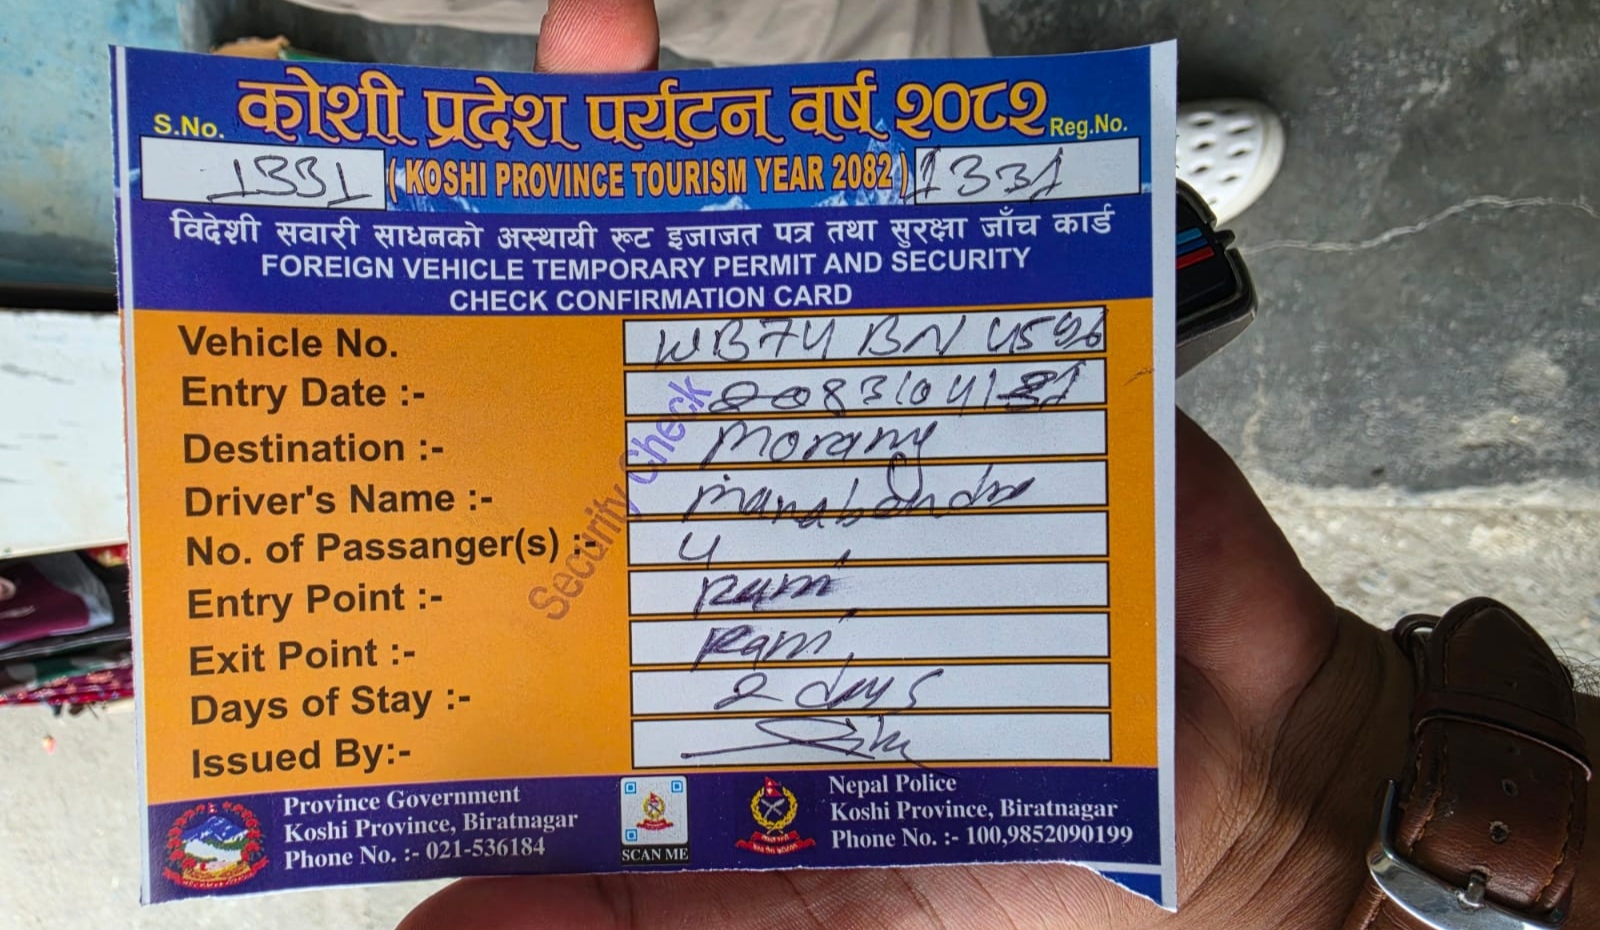 कोशी प्रदेश पर्यटन वर्ष २०८२
S.No. 1331
( KOSHI PROVINCE TOURISM YEAR 2082 )
Reg.No. 1331
विदेशी सवारी साधनको अस्थायी रूट इजाजत पत्र तथा सुरक्षा जाँच कार्ड
FOREIGN VEHICLE TEMPORARY PERMIT AND SECURITY
CHECK CONFIRMATION CARD
Vehicle No. WB74 BN 4596
Entry Date :- 2083/04/
Destination :- Morang
Driver's Name :- Manabendra
No. of Passanger(s) :- 4
Entry Point :- Rani
Exit Point :- Rani
Days of Stay :- 2 days
Issued By:-
Security Check
Province Government
Koshi Province, Biratnagar
Phone No. :- 021-536184
SCAN ME
Nepal Police
Koshi Province, Biratnagar
Phone No. :- 100,9852090199